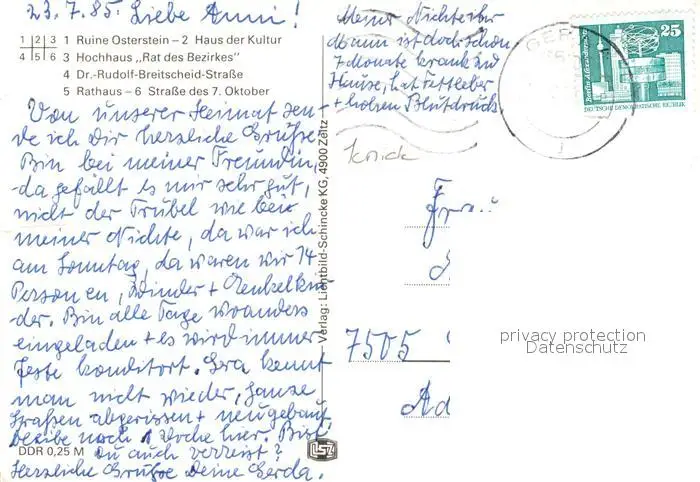 23.7.85. Liebe Anni!
1 2 3 1 Ruine Osterstein – 2 Haus der Kultur
4 5 6 3 Hochhaus „Rat des Bezirkes"
4 Dr.-Rudolf-Breitscheid-Straße
5 Rathaus – 6 Straße des 7. Oktober
Von unserer Heimat sen-
de ich Dir herzliche Grüße
Bin bei meiner Freundin,
da gefällt es mir sehr gut,
nicht der Trubel wie bei
meiner Nichte, da war ich
am Sonntag, da waren wir 14
Personen, Kinder + Enkelkin-
der. Bin alle Tage woanders
eingeladen + es wird immer
feste konditort. Gera kennt
man nicht wieder, ganze
Straßen abgerissen + neugebaut,
bleibe noch 1 Woche hier. Bist
Du auch verreist?
DDR 0,25 M
Herzliche Grüße Deine Gerda.
Verlag: Lichtbild-Schincke KG, 4900 Zeitz
Meiner Nichte ihr
Mann ist doch schon
7 Monate krank zu
Hause, hat Fettleber
+ hohen Blutdruck
GER
25
Berlin, Alexanderplatz
DEUTSCHE DEMOKRATISCHE REPUBLIK
Frau
7505
Ad
privacy protection
Datenschutz